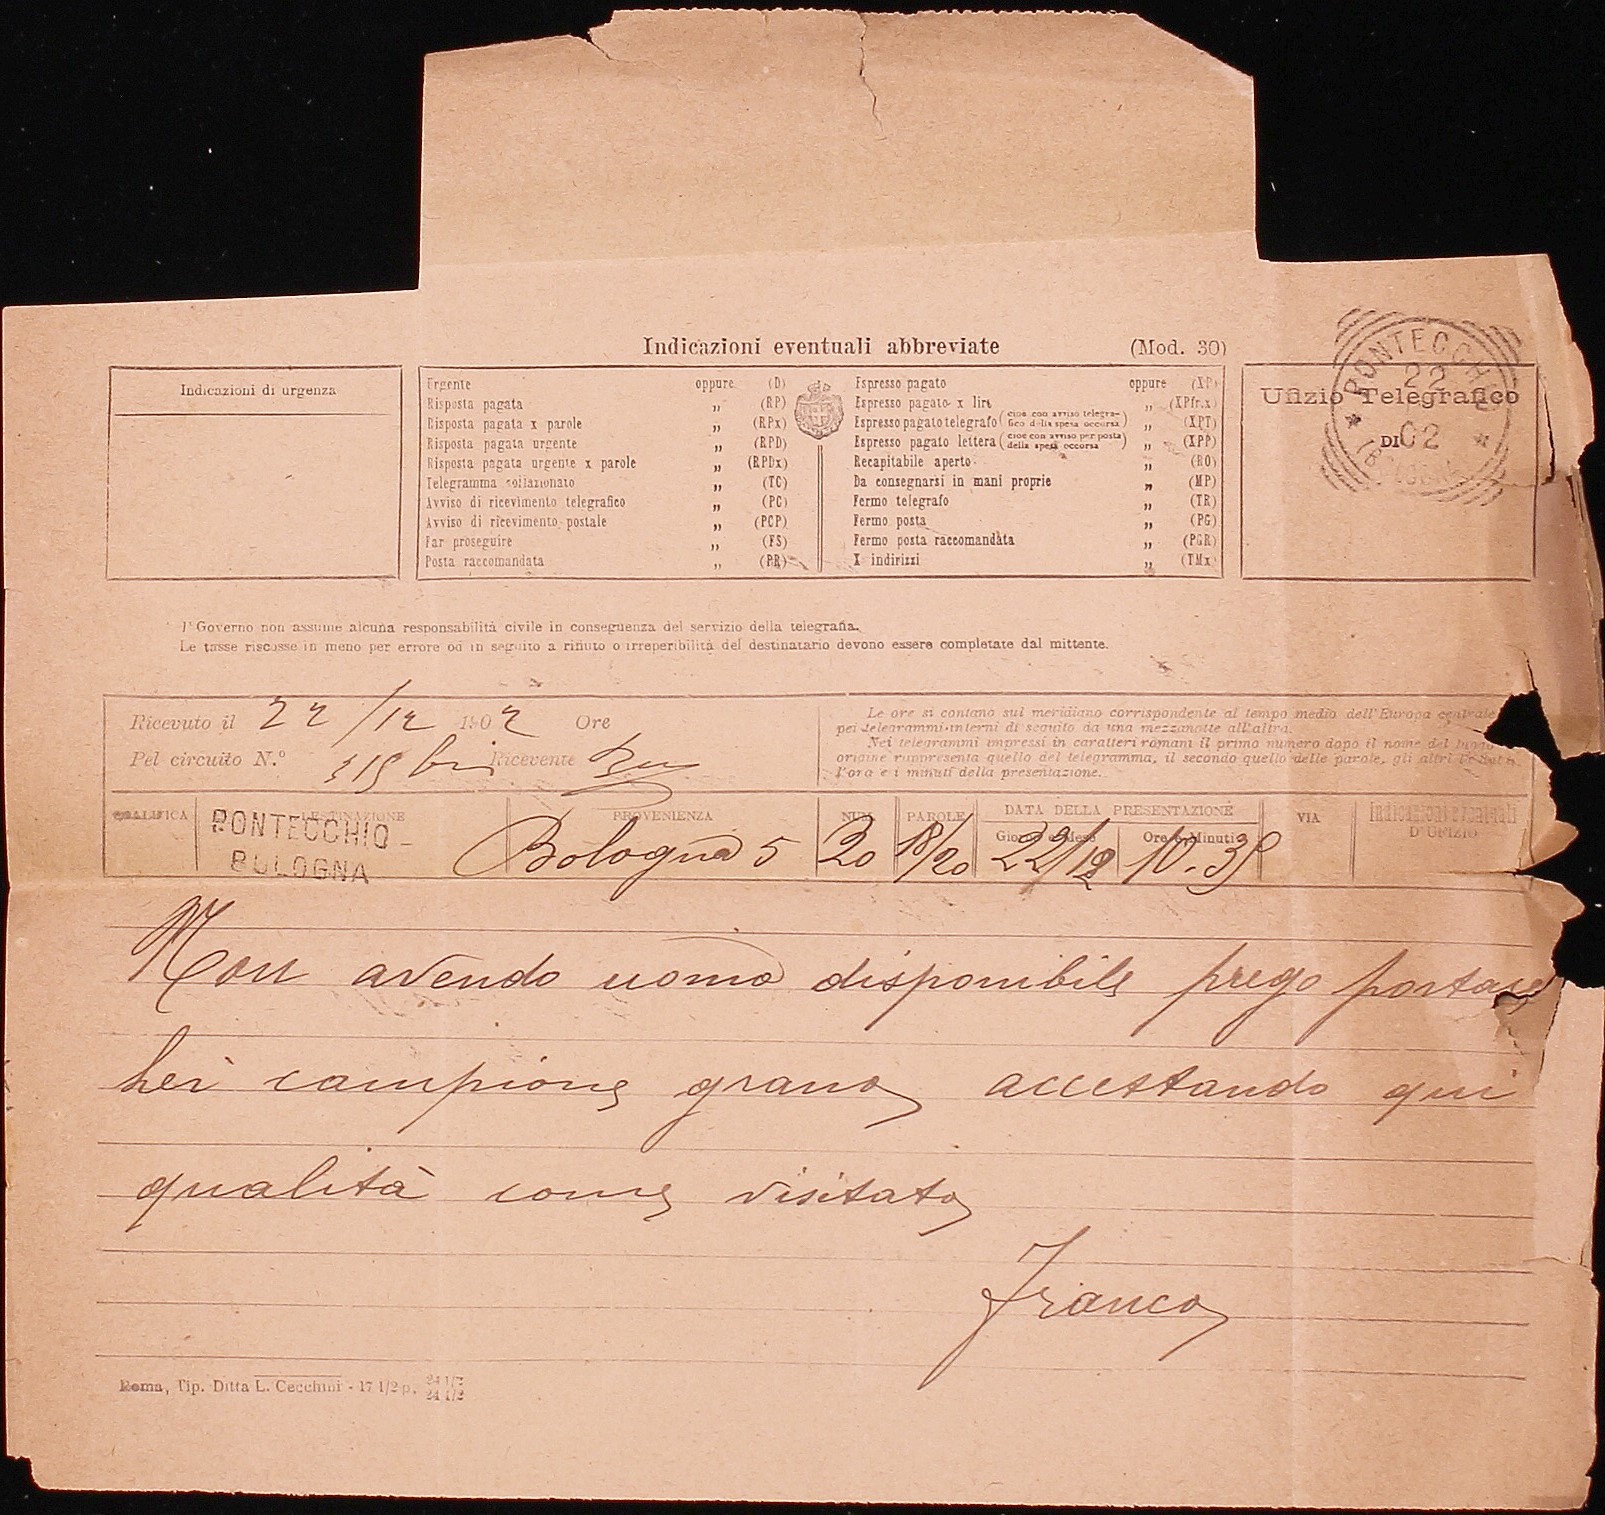 Indicazioni eventuali abbreviate (Mod. 30)
Indicazioni di urgenza
Urgente oppure (D)
Risposta pagata „ (RP)
Risposta pagata x parole „ (RPx)
Risposta pagata urgente „ (RPD)
Risposta pagata urgente x parole „ (RPDx)
Telegramma collazionato „ (TC)
Avviso di ricevimento telegrafico „ (PC)
Avviso di ricevimento postale „ (PCP)
Far proseguire „ (FS)
Posta raccomandata „ (PR)
Espresso pagato oppure (XP)
Espresso pagato x lire „ (XPfr.x)
Espresso pagato telegrafo (cioè con avviso telegrafico della spesa occorsa) „ (XPT)
Espresso pagato lettera (cioè con avviso per posta della spesa occorsa) „ (XPP)
Recapitabile aperto „ (RO)
Da consegnarsi in mani proprie „ (MP)
Fermo telegrafo „ (TR)
Fermo posta „ (PG)
Fermo posta raccomandata „ (PGR)
X indirizzi „ (TMx)
Ufizio Telegrafico
DI
PONTECCHIO
22
02
(BOLOGNA)
Il Governo non assume alcuna responsabilità civile in conseguenza del servizio della telegrafia.
Le tasse riscosse in meno per errore od in seguito a rifiuto o irreperibilità del destinatario devono essere completate dal mittente.
Ricevuto il 22/12 1902 Ore
Pel circuito N.º 315 bis Ricevente
Le ore si contano sul meridiano corrispondente al tempo medio dell'Europa centrale
pei telegrammi interni di seguito da una mezzanotte all'altra.
Nei telegrammi impressi in caratteri romani il primo numero dopo il nome del luogo
origine rappresenta quello del telegramma, il secondo quello delle parole, gli altri
l'ora e i minuti della presentazione.
QUALIFICA DESTINAZIONE PROVENIENZA NUM PAROLE DATA DELLA PRESENTAZIONE VIA Indicazioni eventuali
Giorno e Mese Ore e Minuti D'UFIZIO
PONTECCHIO-
BOLOGNA
Bologna 5 20 18/20 22/12 10.35
Non avendo uomo disponibile prego portare
lei campione grano accettando qui
qualità come visitato
Franco
Roma, Tip. Ditta L. Cecchini - 17 1/2 p. 24 1/2
24 1/2